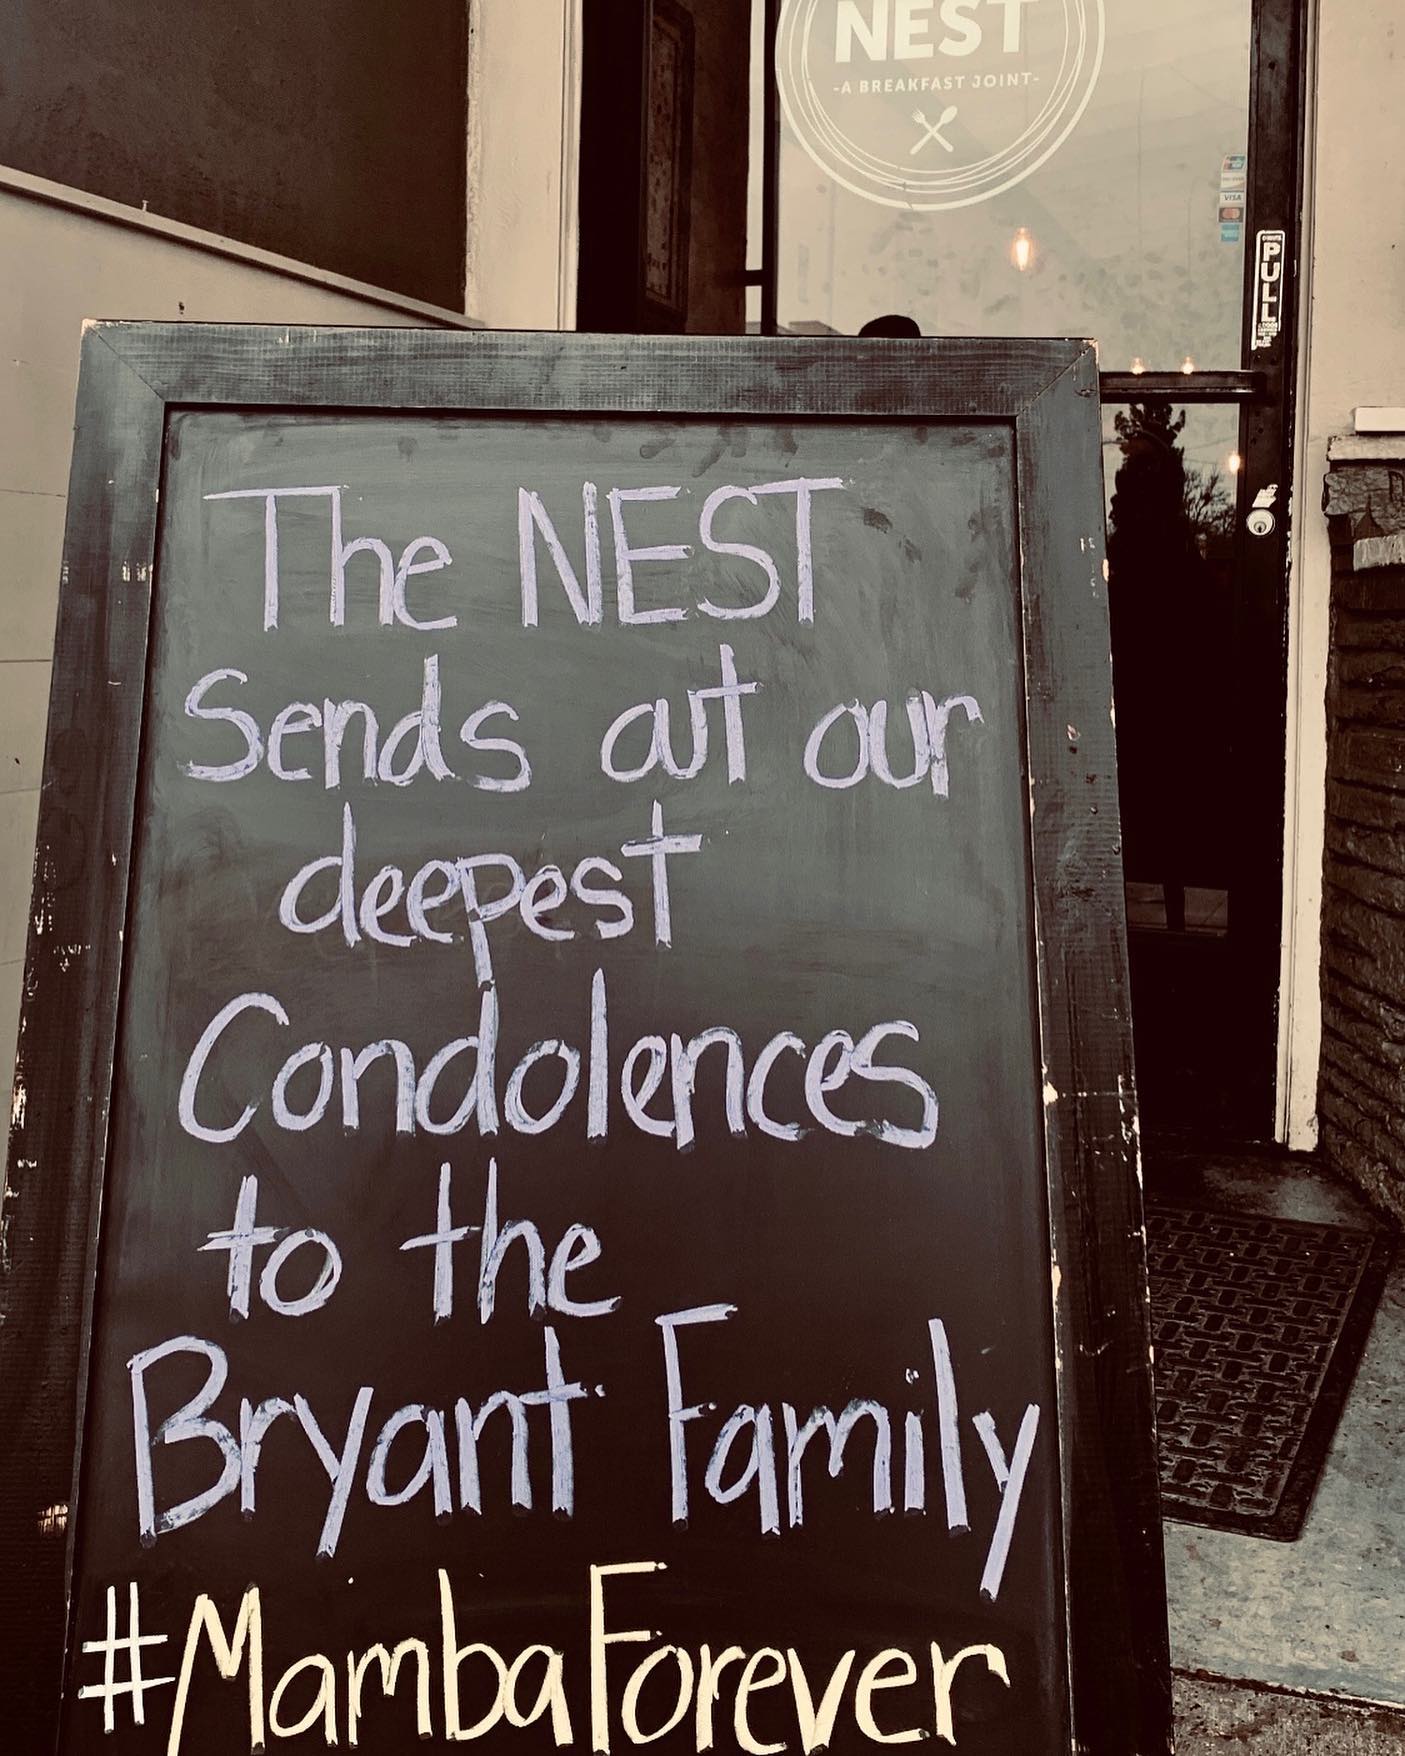 NEST
-A BREAKFAST JOINT-
VISA
PULL
The NEST
Sends out our
deepest
Condolences
to the
Bryant Family
#MambaForever